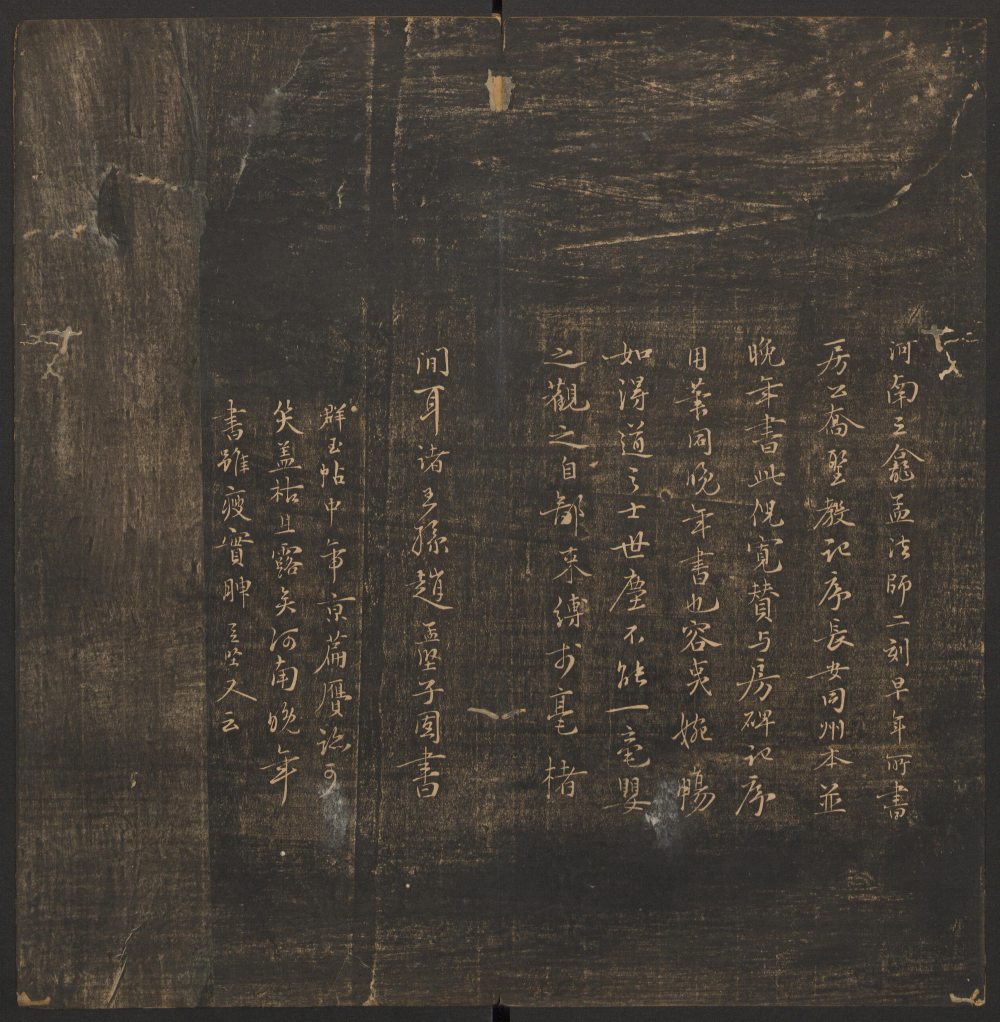 河南三龕孟法師二刻早年所書
房公喬聖教記序長安同州本並
晚年書此倪寬贊与房碑記序
用筆同晚年書也容夷婉暢
如得道之士世塵不能一毫嬰
之觀之自鄙束縛於毫楮
間耳諸王孫趙孟堅子固書
群玉帖中帝京篇贗跡可
笑蓋枯且露矣河南晚年
書雖瘦實腴孟堅又云